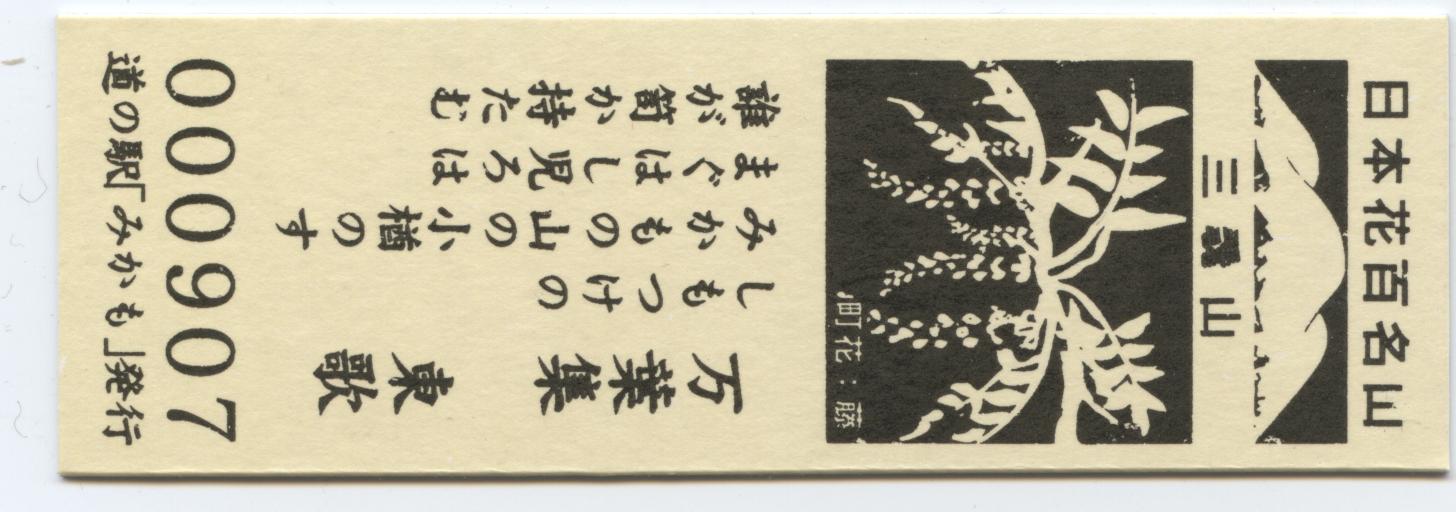 日本花百名山
三毳山
町花:藤
万葉集　東歌
しもつけの
みかもの山の小楢のす
まぐはし児ろは
誰が笥か持たむ
000907
道の駅「みかも」発行